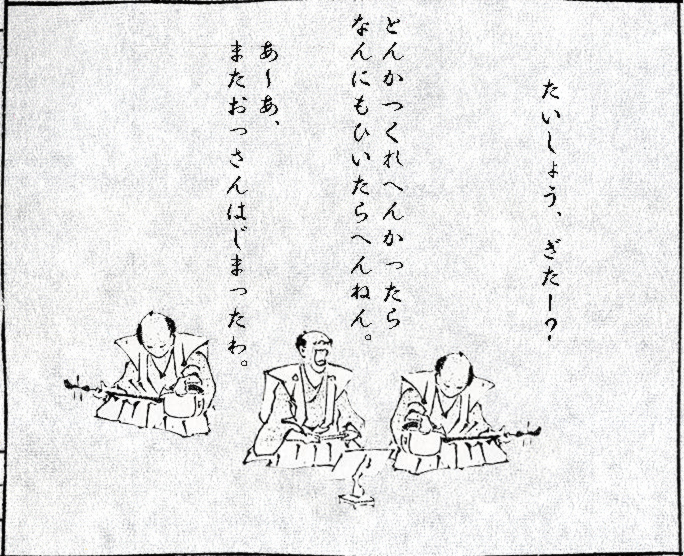 たいしょう、ぎたー?
とんかつくれへんかったら
なんにもひいたらへんねん。
あ〜あ、
またおっさんはじまったわ。